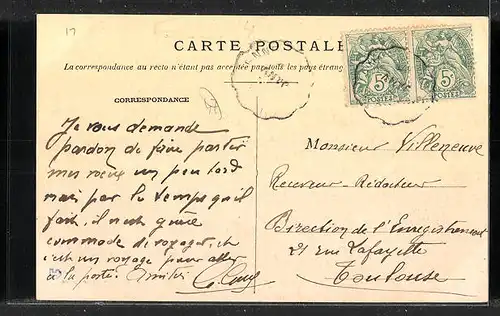 17
CARTE POSTALE
La correspondance au recto n'étant pas acceptée par tous les pays étrang
CORRESPONDANCE
5c
5c
POSTES
POSTES
Je vous demande
pardon de faire partir
mes vœux un peu tard
mais par le temps qu'il
fait, il n'est guère
commode de voyager, et
c'est un voyage pour aller
à la poste.
Monsieur Villeneuve
Receveur-Rédacteur
Direction de l'Enregistrement
21 rue Lafayette
Toulouse